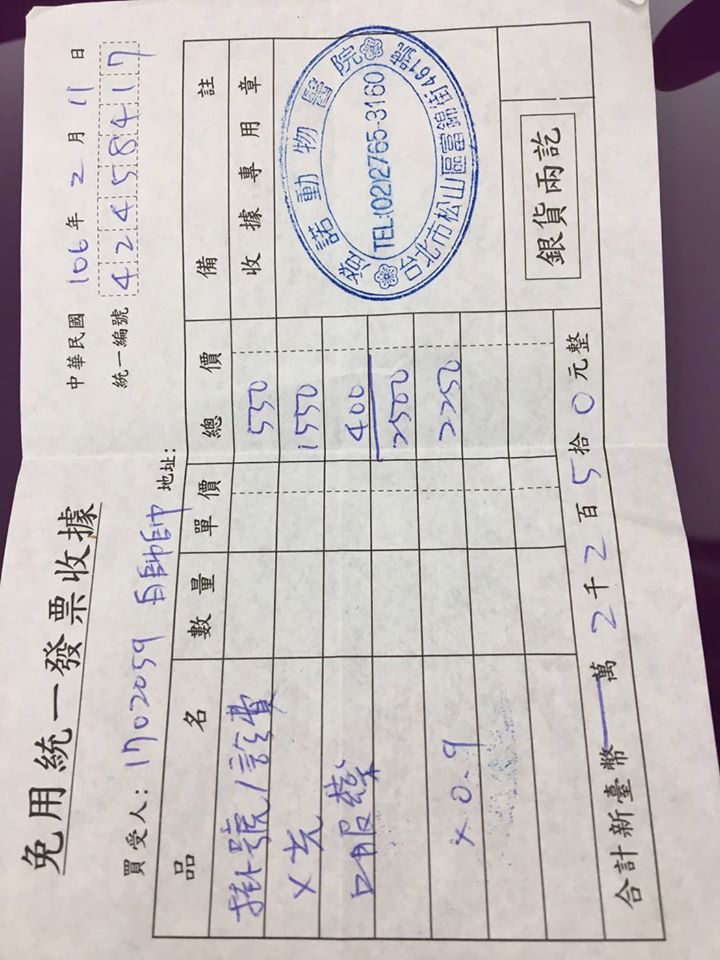 免用統一發票收據
中華民國 106 年 2 月 11 日
統一編號 42458417
買受人：1702059 帥帥 地址：
品 名 數 量 單 價 總 價 備 註
掛號/診費 550 收據專用章
X光 1550
口服藥 400
2500
x 0.9 2250
諾動物醫院
TEL:(02)2765-3160
台北市松山區富錦街461號
銀貨兩訖
合計新臺幣 萬 2 千 2 百 5 拾 0 元整